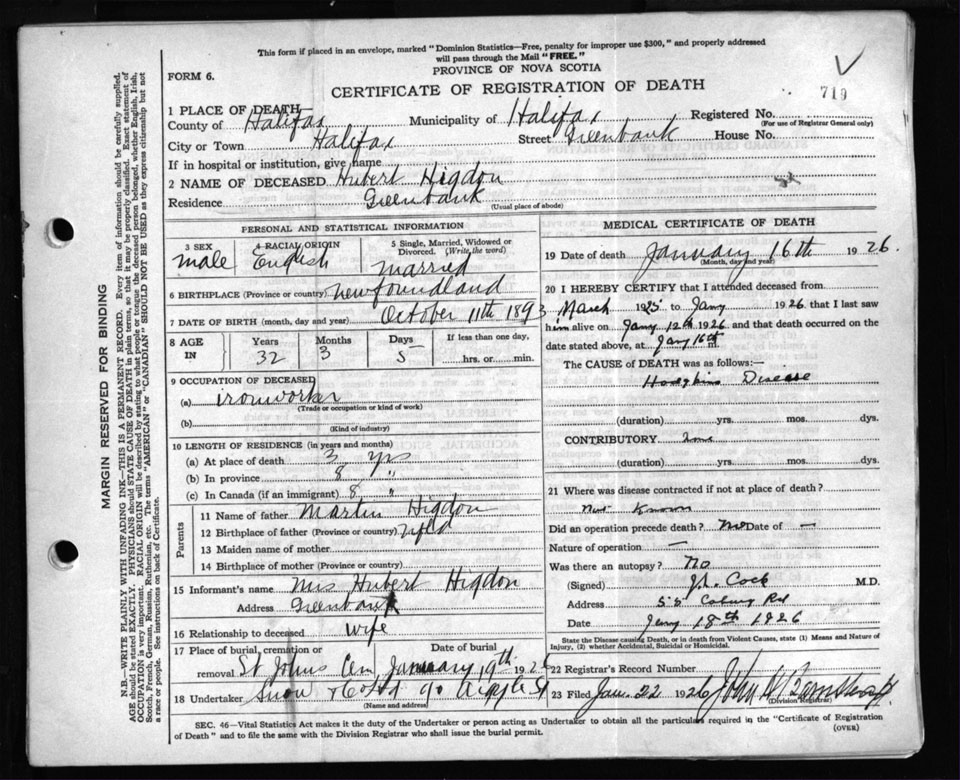 This form if placed in an envelope, marked "Dominion Statistics—Free, penalty for improper use $300," and properly addressed
will pass through the Mail "FREE."
FORM 6.
PROVINCE OF NOVA SCOTIA
CERTIFICATE OF REGISTRATION OF DEATH
719
1 PLACE OF DEATH—
County of Halifax Municipality of Halifax Registered No.
(For use of Registrar General only)
City or Town Halifax Street Greenbank House No.
If in hospital or institution, give name
2 NAME OF DECEASED Hubert Higdon
Residence Greenbank
(Usual place of abode)
PERSONAL AND STATISTICAL INFORMATION
3 SEX
male
4 RACIAL ORIGIN
English
5 Single, Married, Widowed or
Divorced. (Write the word)
married
6 BIRTHPLACE (Province or country) newfoundland
7 DATE OF BIRTH (month, day and year) October 11th 1893
8 AGE
IN
Years
32
Months
3
Days
5
If less than one day,
hrs. or min.
9 OCCUPATION OF DECEASED
(a) ironworker
(Trade or occupation or kind of work)
(b)
(Kind of industry)
10 LENGTH OF RESIDENCE (in years and months)
(a) At place of death 3 yrs
(b) In province 8 "
(c) In Canada (if an immigrant) 8 "
Parents
11 Name of father Martin Higdon
12 Birthplace of father (Province or country) Nfld
13 Maiden name of mother
14 Birthplace of mother (Province or country)
15 Informant's name Mrs Hubert Higdon
Address Greenbank
16 Relationship to deceased wife
17 Place of burial, cremation or Date of burial
removal St Johns Cem, January 19th 1926
18 Undertaker Snow & Co Ltd 90 Argyle St
(Name and address)
MEDICAL CERTIFICATE OF DEATH
19 Date of death January 16th 1926.
(Month, day and year)
20 I HEREBY CERTIFY that I attended deceased from
March 1925 to Jany 1926 that I last saw
him alive on Jany 12th 1926 and that death occurred on the
date stated above, at Jany 16th
The CAUSE of DEATH was as follows:—
Hodgkins Disease
(duration) yrs. mos. dys.
CONTRIBUTORY
(duration) yrs. mos. dys.
21 Where was disease contracted if not at place of death?
Not Known
Did an operation precede death? No Date of —
Nature of operation —
Was there an autopsy? No
(Signed) Cock M.D.
Address 58 Coburg Rd
Date Jany 18th 1926
State the Disease causing Death, or in death from Violent Causes, state (1) Means and Nature of
Injury, (2) whether Accidental, Suicidal or Homicidal.
22 Registrar's Record Number
23 Filed Jan. 22 1926 John
(Division Registrar)
SEC. 46—Vital Statistics Act makes it the duty of the Undertaker or person acting as Undertaker to obtain all the particulars required in the "Certificate of Registration
of Death" and to file the same with the Division Registrar who shall issue the burial permit.
(OVER)
MARGIN RESERVED FOR BINDING
N.B.—WRITE PLAINLY WITH UNFADING INK—THIS IS A PERMANENT RECORD. Every item of information should be carefully supplied.
AGE should be stated EXACTLY. PHYSICIANS should STATE CAUSE OF DEATH in plain terms, so that it may be properly classified. Exact statement of
OCCUPATION is very important. RACIAL ORIGIN will be described by stating to what people or tongue the deceased person belonged, whether English, Irish,
Scotch, French, German, Russian, Ruthenian, etc. The terms "AMERICAN" or "CANADIAN" SHOULD NOT BE USED as they express citizenship but not
a race or people. See instructions on back of Certificate.